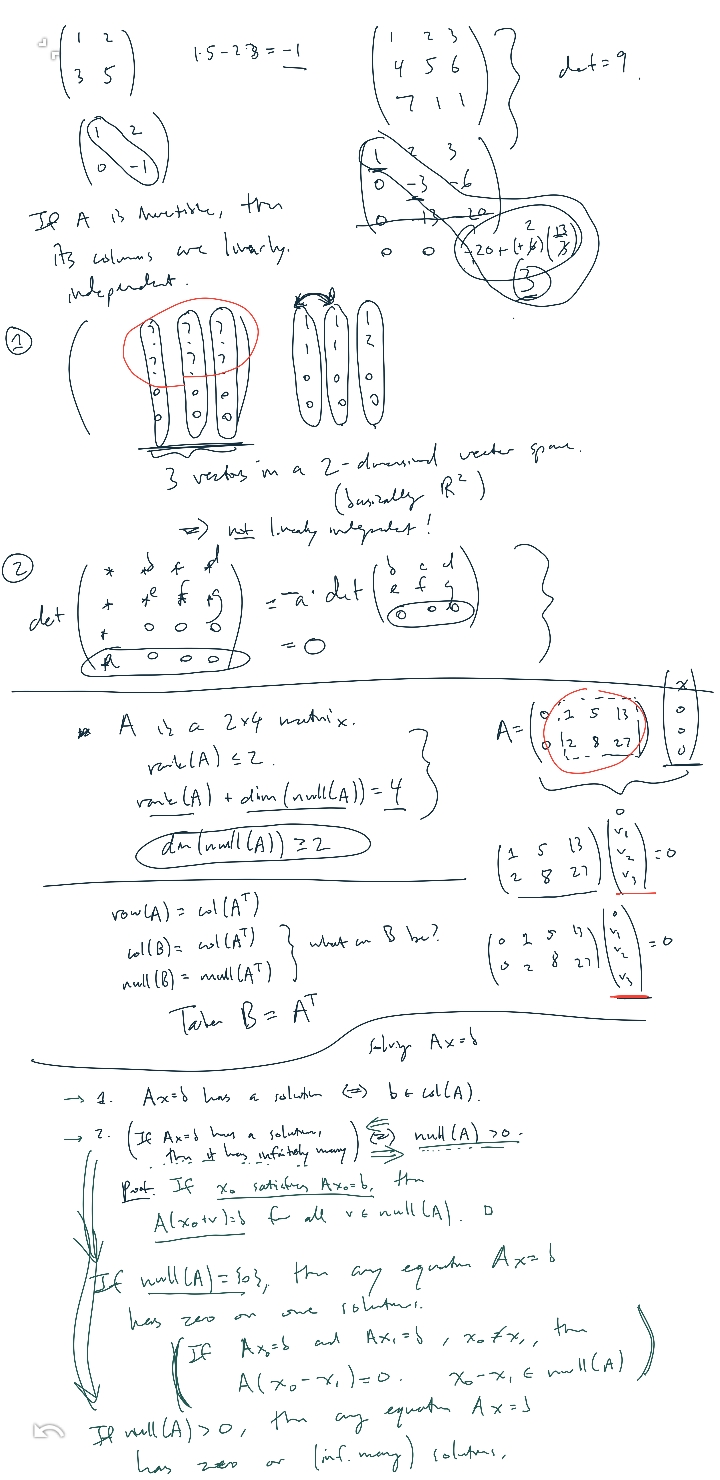 ( 1 2 ; 3 5 ) 1·5-2·3 = -1
( 1 2 3 ; 4 5 6 ; 7 1 1 ) } det = 9.
( 1 2 ; 0 -1 )
( 1 2 3 ; 0 -3 -6 ; 0 -13 -20 )
0 0 -20+(+6)(13/3) 2
3
If A is invertible, then
its columns are linearly
independent.
① ( ? ? ? 1 1 1
? ? ? 1 1 2
0 0 0 0 0 0
0 0 0 0 0 0
3 vectors in a 2-dimensional vector space.
(basically R²)
=> not linearly independent!
② det ( * b c d ; * e f g ; * 0 0 0 ; a 0 0 0 ) = -a · det ( b c d ; e f g ; 0 0 0 )
= 0
A is a 2×4 matrix.
rank(A) ≤ 2.
rank(A) + dim(null(A)) = 4
dim(null(A)) ≥ 2
A = ( 0 1 5 13 ; 0 2 8 27 ) ( x ; 0 ; 0 ; 0 )
( 1 5 13 ; 2 8 27 ) ( v₁ ; v₂ ; v₃ ) = 0
( 0 1 5 13 ; 0 2 8 27 ) ( 0 ; v₁ ; v₂ ; v₃ ) = 0
row(A) = col(Aᵀ)
col(B) = col(Aᵀ) } what can B be?
null(B) = null(Aᵀ)
Take B = Aᵀ
Solving Ax=b
→ 1. Ax=b has a solution <=> b ∈ col(A).
→ 2. (If Ax=b has a solution, <=> null(A) > 0.
then it has infinitely many)
Proof. If x₀ satisfies Ax₀=b, then
A(x₀+v)=b for all v ∈ null(A). □
If null(A) = {0}, then any equation Ax=b
has zero or one solutions.
(If Ax₀=b and Ax₁=b, x₀≠x₁, then
A(x₀-x₁)=0. x₀-x₁ ∈ null(A))
If null(A) > 0, then any equation Ax=b
has zero or (inf. many) solutions.